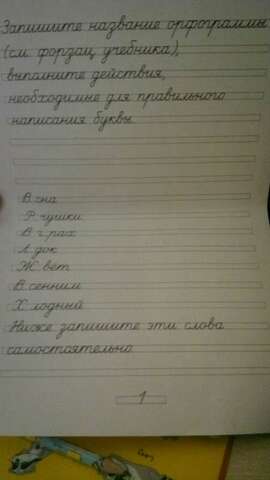 Запишите название орфограммы
(см. форзац учебника),
выполните действия,
необходимые для правильного
написания буквы.
В.сна
Р.гушки
В г.рах
Л.док
Ж.вет
В.сенним
Х.лодный
Ниже запишите эти слова
самостоятельно.
1